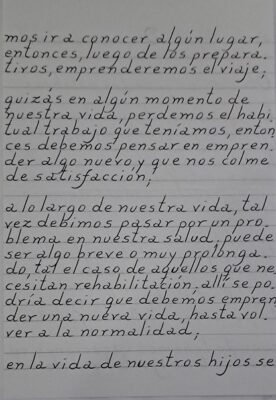 mos ir a conocer algún lugar,
entonces, luego de los prepara-
tivos, emprenderemos el viaje;
quizás en algún momento de
nuestra vida, perdemos el habi
tual trabajo que teníamos, enton
ces debemos pensar en empren-
der algo nuevo y que nos colme
de satisfacción;
a lo largo de nuestra vida, tal
vez debimos pasar por un pro-
blema en nuestra salud, puede
ser algo breve o muy prolonga-
do, tal el caso de aquellos que ne
cesitan rehabilitación, allí se po-
dría decir que debemos empren
der una nueva vida, hasta vol-
ver a la normalidad;
en la vida de nuestros hijos se